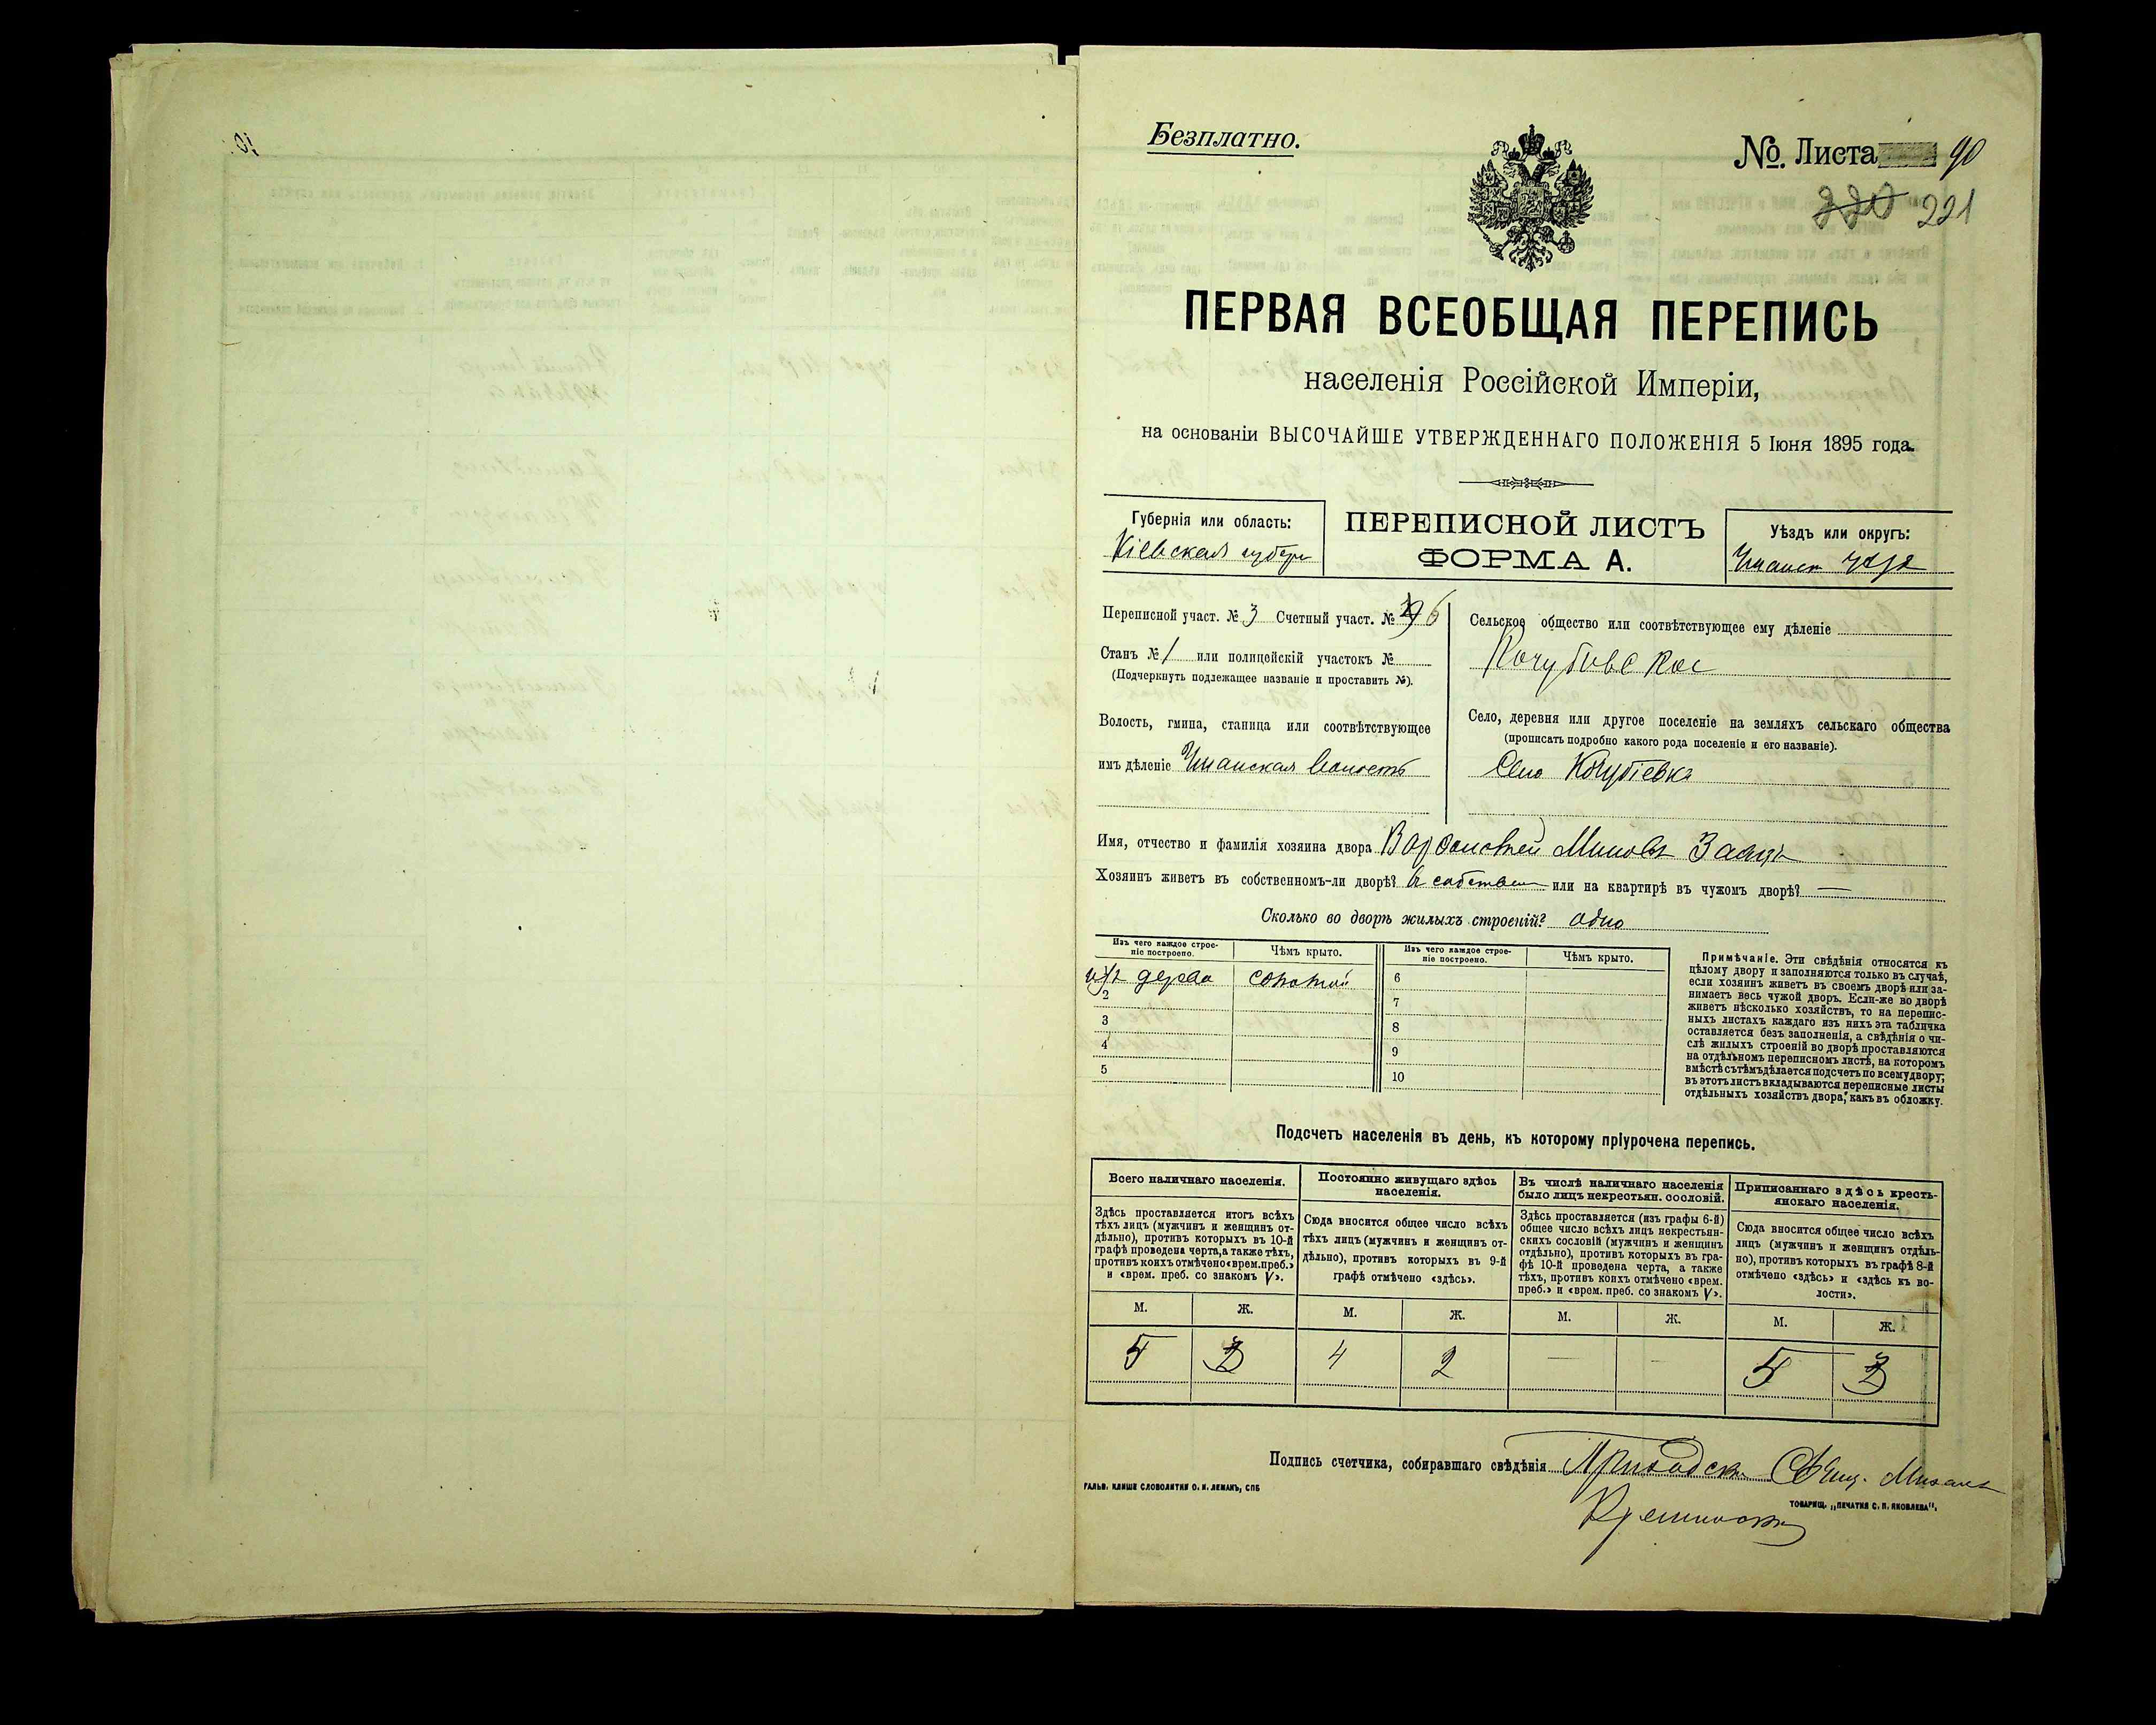 Безплатно.
№ Листа 90
220 221
ПЕРВАЯ ВСЕОБЩАЯ ПЕРЕПИСЬ
населенія Россійской Имперіи,
на основаніи ВЫСОЧАЙШЕ УТВЕРЖДЕННАГО ПОЛОЖЕНІЯ 5 Іюня 1895 года.
Губернія или область:
Кіевская губерн
ПЕРЕПИСНОЙ ЛИСТЪ
ФОРМА А.
Уѣздъ или округъ:
Уманск уѣзд
Переписной участ. № 3 Счетный участ. № 6
Станъ № 1 или полицейскій участокъ №
(Подчеркнуть подлежащее названіе и проставить №).
Волость, гмина, станица или соотвѣтствующее
имъ дѣленіе Уманская волость
Сельское общество или соотвѣтствующее ему дѣленіе
Кочубивское
Село, деревня или другое поселеніе на земляхъ сельскаго общества
(прописать подробно какого рода поселеніе и его названіе).
Село Кочубіевка
Имя, отчество и фамилія хозяина двора Варфоломей Миновъ Заяцъ
Хозяинъ живетъ въ собственномъ-ли дворѣ? в собствен или на квартирѣ въ чужомъ дворѣ? —
Сколько во дворѣ жилыхъ строеній? одно
Изъ чего каждое строеніе построено. Чѣмъ крыто. Изъ чего каждое строеніе построено. Чѣмъ крыто.
изъ дерева соломой 6
2 7
3 8
4 9
5 10
Примѣчаніе. Эти свѣдѣнія относятся къ
цѣлому двору и заполняются только въ случаѣ,
если хозяинъ живетъ въ своемъ дворѣ или за-
нимаетъ весь чужой дворъ. Если-же во дворѣ
живетъ нѣсколько хозяйствъ, то на перепис-
ныхъ листахъ каждаго изъ нихъ эта табличка
оставляется безъ заполненія, а свѣдѣнія о чи-
слѣ жилыхъ строеній во дворѣ проставляются
на отдѣльномъ переписномъ листѣ, на которомъ
вмѣстѣ съ тѣмъ дѣлается подсчетъ по всему двору;
въ этотъ листъ вкладываются переписные листы
отдѣльныхъ хозяйствъ двора, какъ въ обложку.
Подсчетъ населенія въ день, къ которому пріурочена перепись.
Всего наличнаго населенія.
Здѣсь проставляется итогъ всѣхъ
тѣхъ лицъ (мужчинъ и женщинъ от-
дѣльно), противъ которыхъ въ 10-й
графѣ проведена черта, а также тѣхъ,
противъ коихъ отмѣчено «врем. преб.»
и «врем. преб. со знакомъ V».
Постоянно живущаго здѣсь
населенія.
Сюда вносится общее число всѣхъ
тѣхъ лицъ (мужчинъ и женщинъ от-
дѣльно), противъ которыхъ въ 9-й
графѣ отмѣчено «здѣсь».
Въ числѣ наличнаго населенія
было лицъ некрестьян. сословій.
Здѣсь проставляется (изъ графы 6-й)
общее число всѣхъ лицъ некрестьян-
скихъ сословій (мужчинъ и женщинъ
отдѣльно), противъ которыхъ въ гра-
фѣ 10-й проведена черта, а также
тѣхъ, противъ коихъ отмѣчено «врем.
преб.» и «врем. преб. со знакомъ V».
Приписаннаго здѣсь кресть-
янскаго населенія.
Сюда вносится общее число всѣхъ
лицъ (мужчинъ и женщинъ отдѣль-
но), противъ которыхъ въ графѣ 8-й
отмѣчено «здѣсь» и «здѣсь къ во-
лости».
М. Ж. М. Ж. М. Ж. М. Ж.
5 3 4 2 — — 5 3
Подпись счетчика, собиравшаго свѣдѣнія Михаил
ГАЛЬВ. КЛИШЕ СЛОВОЛИТНИ О. И. ЛЕМАНЪ, СПБ
ТОВАРИЩ. „ПЕЧАТНЯ С. П. ЯКОВЛЕВА",